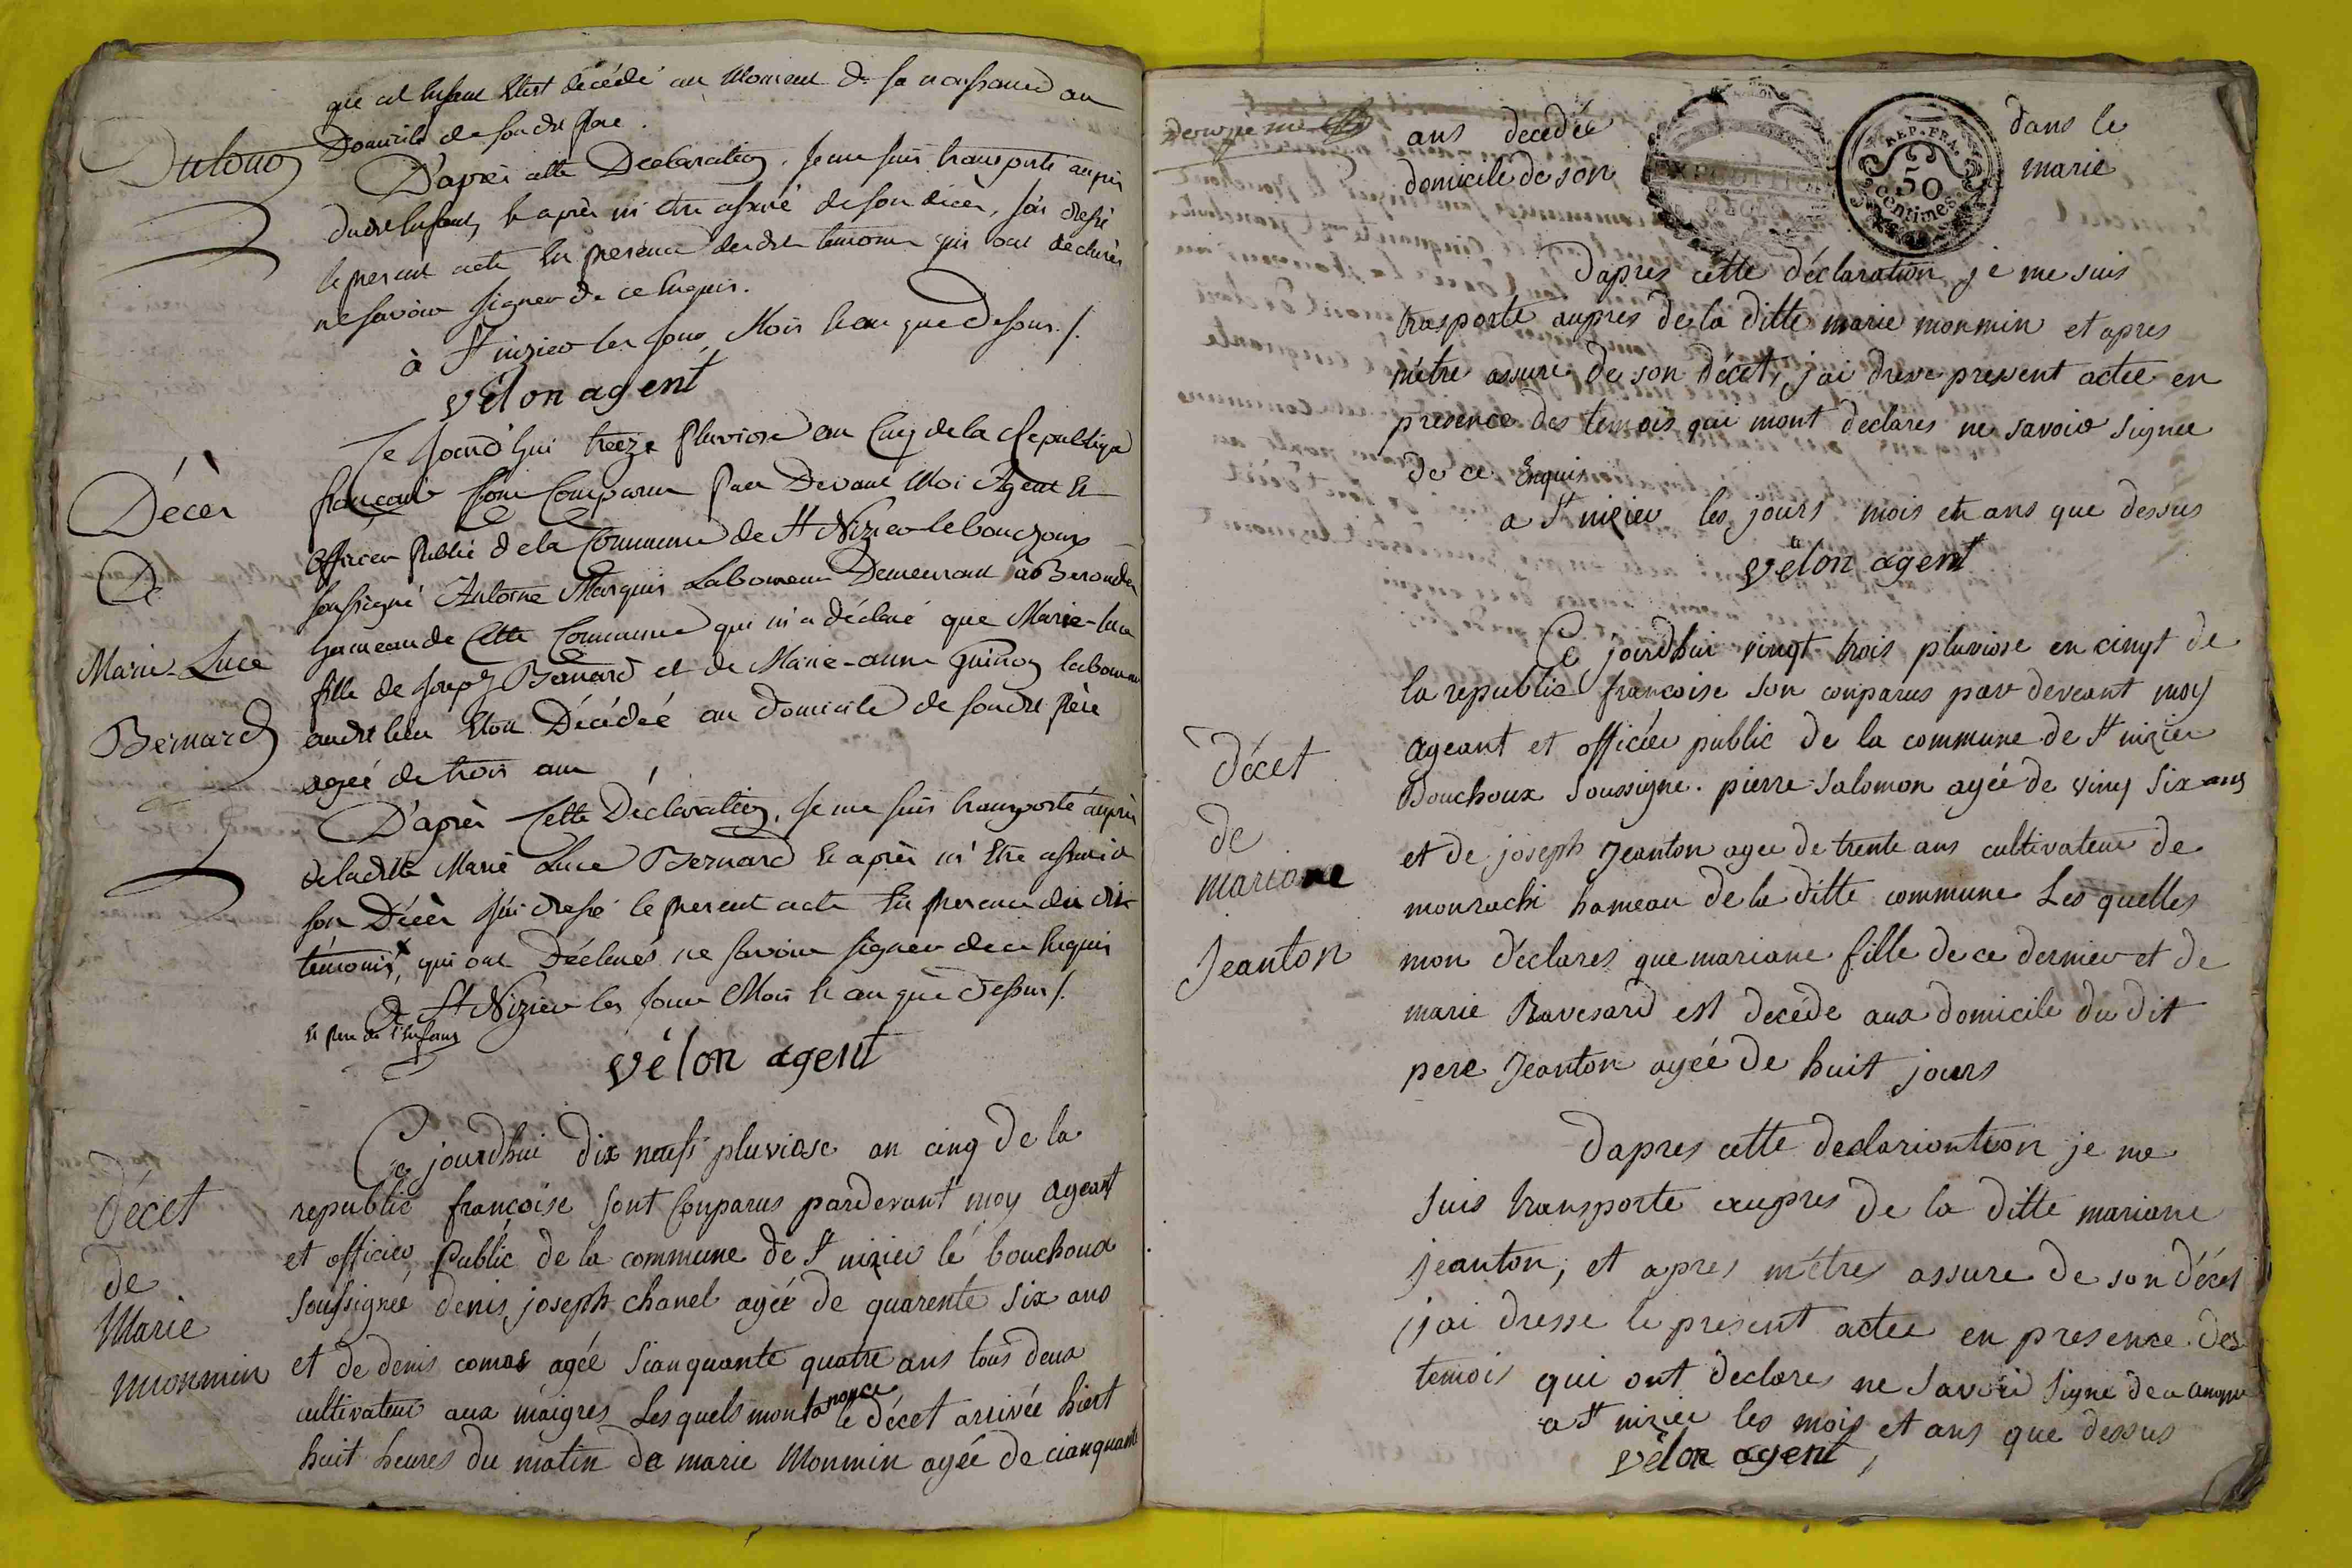 que cet Enfant Etoit décédé au Moment de sa naissance au
Domicile de son dit Pere.
Dulono
D'après cette Declaration, Je me suis transporté auprès
dudit Enfant, & après m'être assuré de son décès, j'ai dressé
le present acte En presence desdits temoins qui ont declarés
ne savoir signer de ce Enquis.
à St nizier les Jour, Mois & an que dessus ./.
vélon agent
Décès
De
Marie-Luce
Bernard
Ce Jourd'hui treize Pluviose an Cinq de la Republique
francaise sont Comparus Par Devant Moi Agent &
officier Public de la Commune de St Nizier le bouchoux
soussigné Antoine Marquis Laboureur Demeurant à Beroudes
hameau de Cette Commune qui m'a déclaré que Marie-luce
fille de Joseph Bernard et de Marie-anne Guinon laboureur
audit lieu Etoit Décédée au domicile de son dit Père
agée de trois ans
D'après Cette Déclaration, Je me suis transporté auprès
de ladite Marie Luce Bernard & après m'être assuré de
son Décès J'ai dressé le present acte En presence des dits
témoins x, qui ont Déclarés ne savoir signer de ce Enquis
à St Nizier les Jour Mois & an que dessus ./.
& pere de l'Enfant
vélon agent
décet
de
Marie
monmin
Ce jourdhui dix neufs pluviose an cinq de la
republic françoise sont Conparus pardevant moy ageant
et officier Public de la commune de St nizier lé bouchoux
soussignéé denis joseph chanel agéé de quarente six ans
et de denis comas agéé sianquante quatre ans tous deux
cultivateur aux maigres Les quels mont anonce le décet arrivée hiert
huit heures du matin de marie Monmin agéé de cianquante
deuzieme
ans decedée dans le
domicile de son marie
REP. FRA.
50
Centimes
dapres cette déclaration je me suis
trasporte aupres de la ditte marie monmin et apres
mètre assuré de son décet, j'ai dresse pressent actee en
presence des temois qui mont declares ne savoir signee
de ce Enquis
a St nizier les jours mois et ans que dessus
vélon agent
décet
de
mariane
Jeanton
Ce jourdhui vingt trois pluviose en cinqt de
la republic françoise son conparus par deveant moy
ageant et officiéer public de la commune de St nizier
Bouchoux soussigne. pierre Salomon agéé de vinq six ans
et de joseph Jeanton agee de trente ans cultivateur de
monrachi hameau de la ditte commune Les quelles
mon déclares que mariane fille de ce dernier et de
marie Ravesard est decéde aux domicile du dit
pere Jeanton agéé de huit jours
dapres cette declariontion je me
suis transporte aupres de la ditte mariane
jeanton, et apres métres assure de son décet
jai dresse le present actee en presence des
temois qui ont declares ne Savoir Signe de ce
a St nizier les mois et ans que dessus
vélon agent